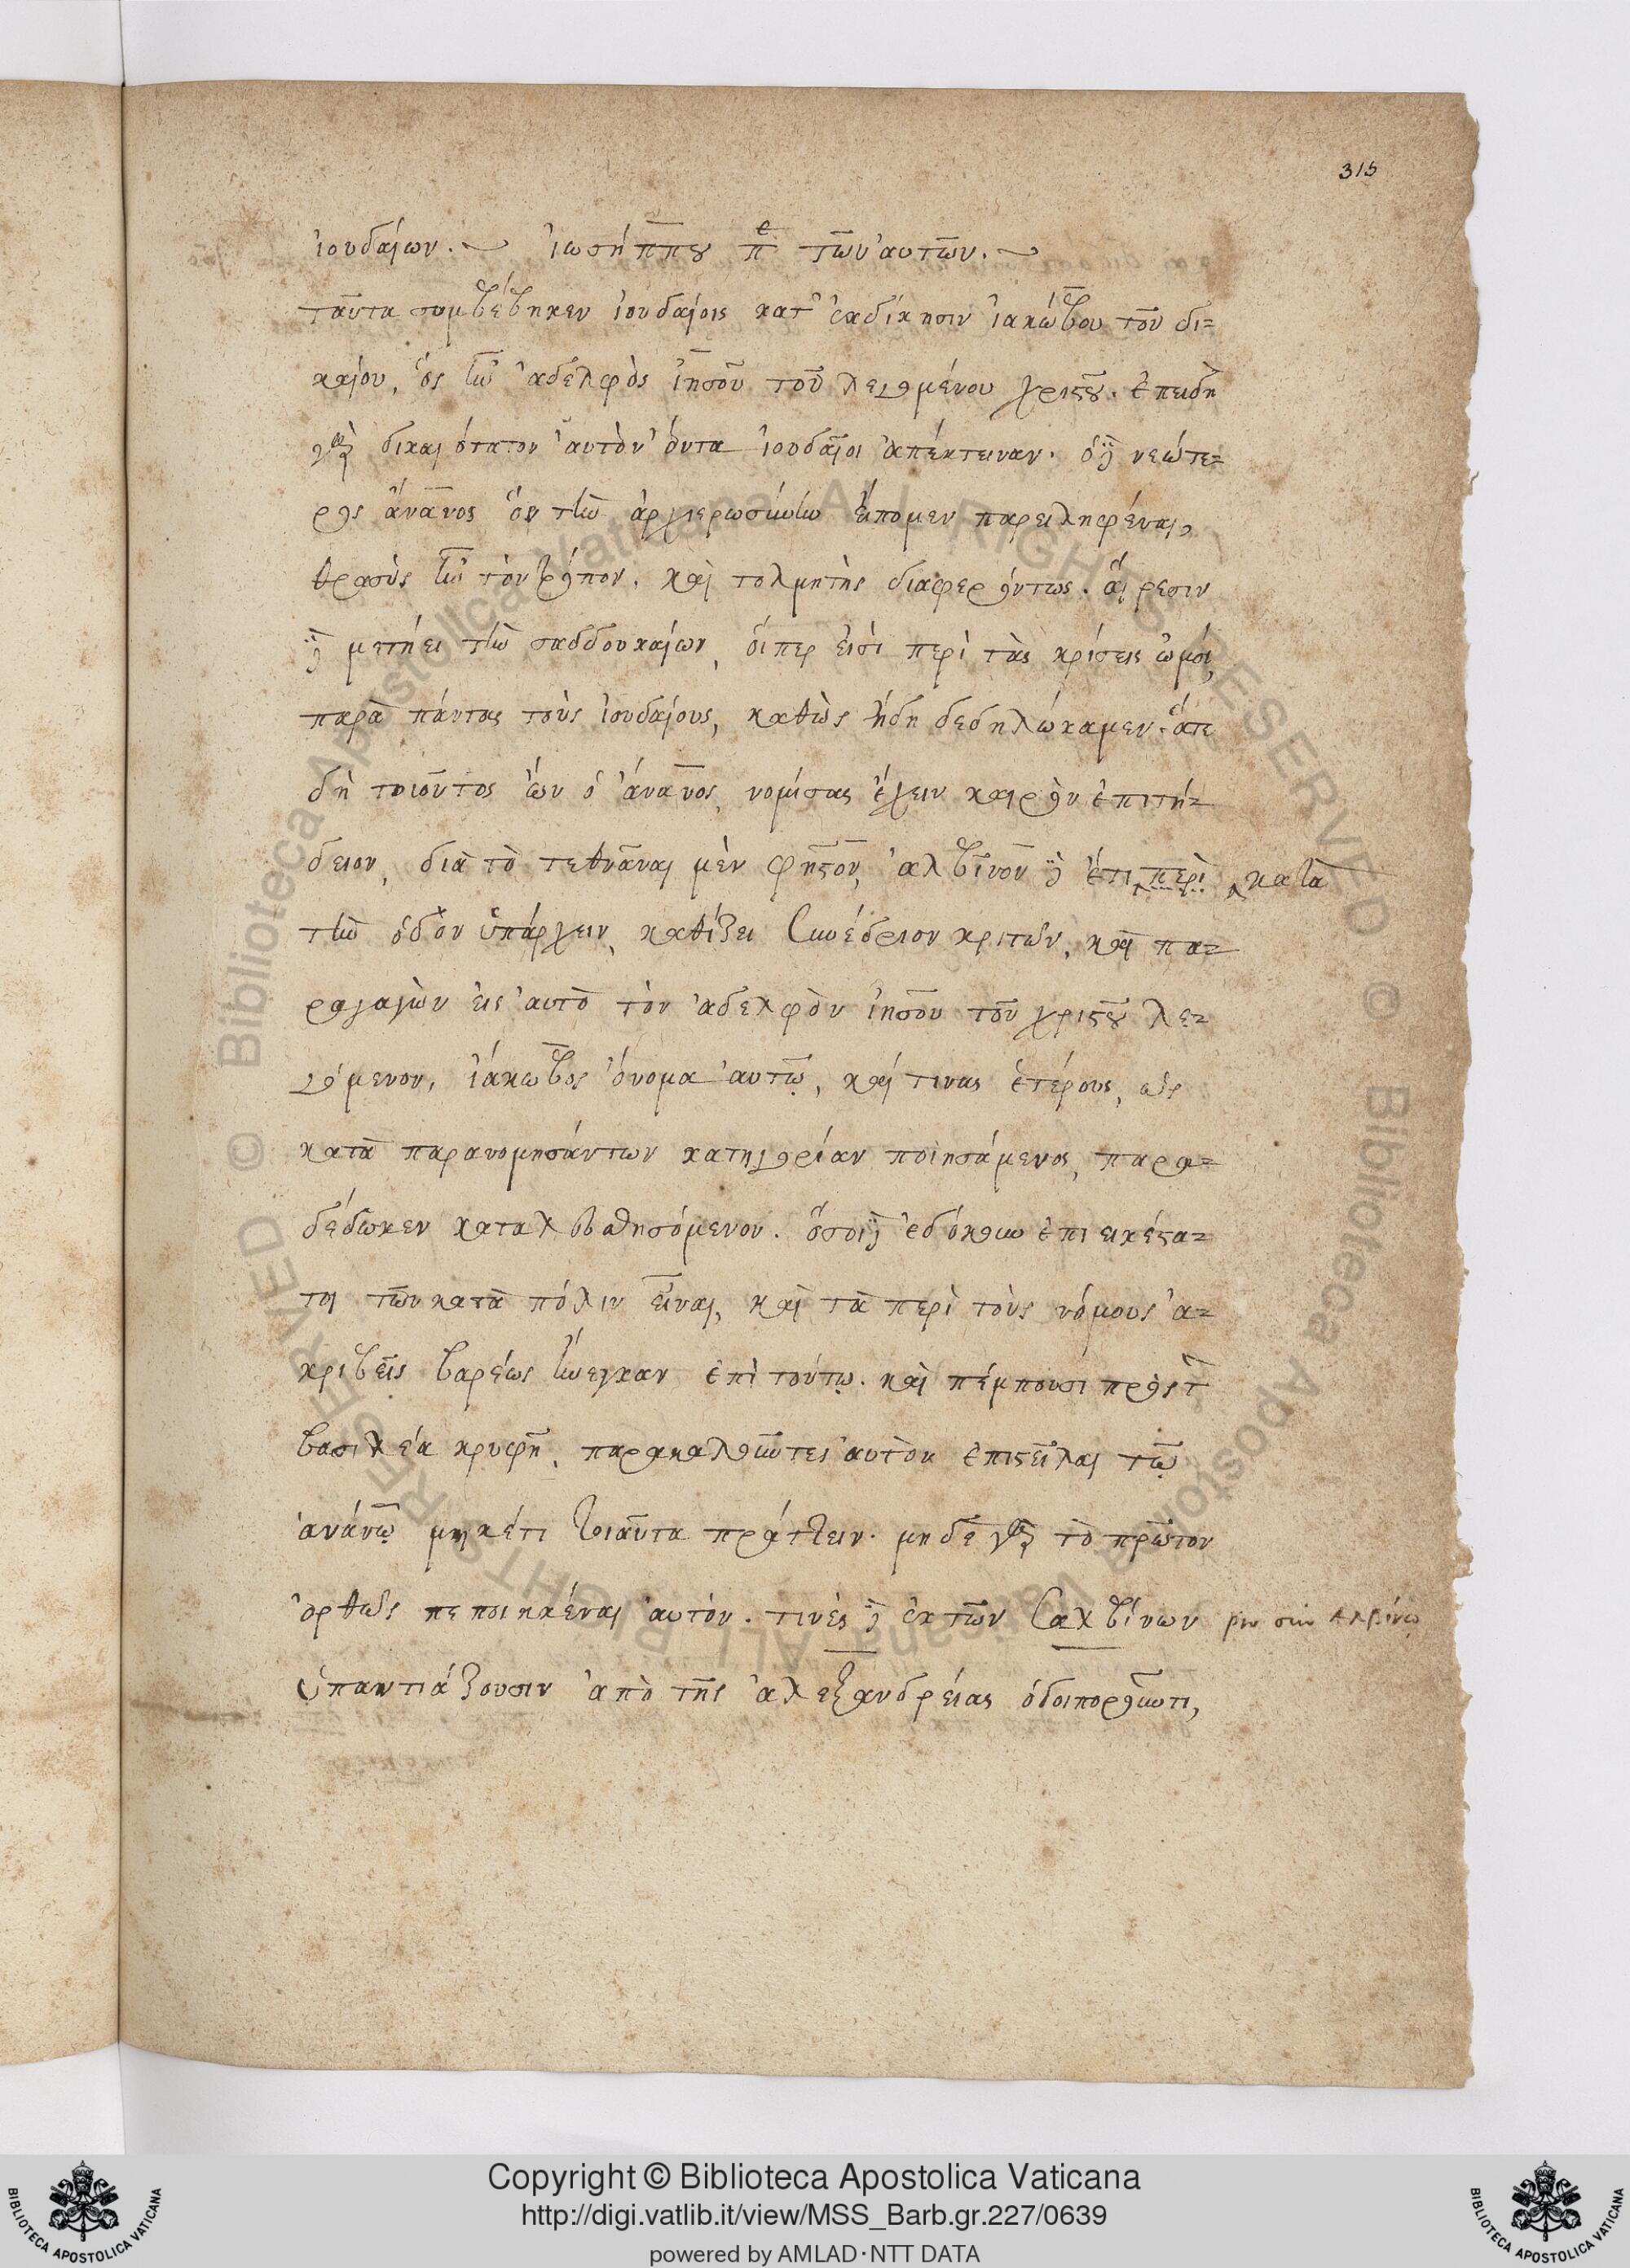 315
ἰουδαίων. ἰωσήππου πε τῶν αὐτῶν.
ταῦτα συμβέβηκεν ἰουδαίοις κατ' ἐκδίκησιν ἰακώβου τοῦ δι=
καίου, ὃς ἦν ἀδελφὸς ἰησοῦ τοῦ λεγομένου χριστοῦ. ἐπειδὴ
γὰρ δικαιότατον αὐτὸν ὄντα ἰουδαῖοι ἀπέκτειναν. ὁ δὲ νεώτε=
ρος ἄνανος ὃν τὴν ἀρχιερωσύνην εἴπομεν παρειληφέναι,
θρασὺς ἦν τὸν τρόπον, καὶ τολμητὴς διαφερόντως. αἵρεσιν
δὲ μετήει τὴν σαδδουκαίων, οἵπερ εἰσὶ περὶ τὰς κρίσεις ὠμοί,
παρὰ πάντας τοὺς ἰουδαίους, καθὼς ἤδη δεδηλώκαμεν. ἅτε
δὴ τοιοῦτος ὢν ὁ ἄνανος, νομίσας ἔχειν καιρὸν ἐπιτή=
δειον, διὰ τὸ τεθνᾶναι μὲν φῆστον, ἀλβῖνον δὲ ἔτι περὶ κατὰ
τὴν ὁδὸν ὑπάρχειν, καθίζει συνέδριον κριτῶν, καὶ πα=
ραγαγὼν εἰς αὐτὸ τὸν ἀδελφὸν ἰησοῦ τοῦ χριστοῦ λε=
γόμενον, ἰάκωβος ὄνομα αὐτῷ, καί τινας ἑτέρους, ὡς
κατὰ παρανομησάντων κατηγορίαν ποιησάμενος, παρα=
δέδωκεν καταλευσθησόμενον. ὅσοι δὲ ἐδόκουν ἐπιεικέστα=
τοι τῶν κατὰ πόλιν εἶναι, καὶ τὰ περὶ τοὺς νόμους ἀ=
κριβεῖς βαρέως ἤνεγκαν ἐπὶ τούτῳ. καὶ πέμπουσι πρὸς τ
βασιλέα κρυφῆ, παρακαλοῦντες αὐτὸν ἐπιστεῖλαι τῷ
ἀνάνῳ μηκέτι τοιαῦτα πράττειν. μηδὲ γὰρ τὸ πρῶτον
ὀρθῶς πεποιηκέναι αὐτόν. τινὲς δὲ ἐκ τῶν σαλβίνων σὺν ἀλβίνῳ
ὑπαντιάζουσιν ἀπὸ τῆς ἀλεξανδρείας ὁδοιποροῦντι,
© Biblioteca Apostolica Vaticana ALL RIGHTS RESERVED © Biblioteca Apostolica Vaticana ALL RIGHTS RESERVED
Copyright © Biblioteca Apostolica Vaticana
http://digi.vatlib.it/view/MSS_Barb.gr.227/0639
powered by AMLAD·NTT DATA
BIBLIOTECA APOSTOLICA VATICANA
BIBLIOTECA APOSTOLICA VATICANA